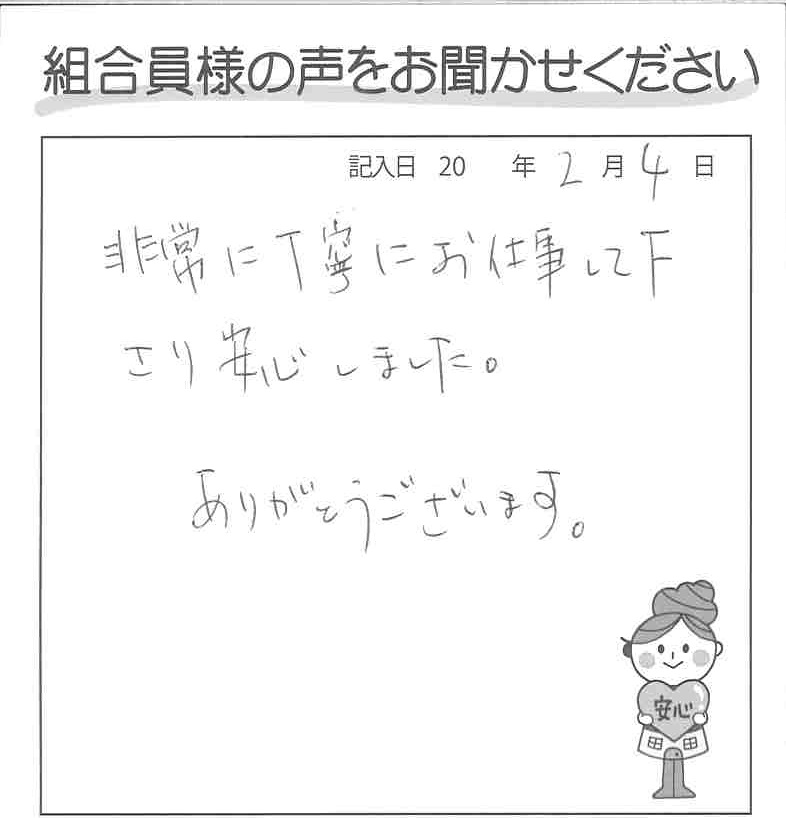 組合員様の声をお聞かせください
記入日 20 年 2 月 4 日
非常に丁寧にお仕事して下
さり安心しました。
ありがとうございます。
安心